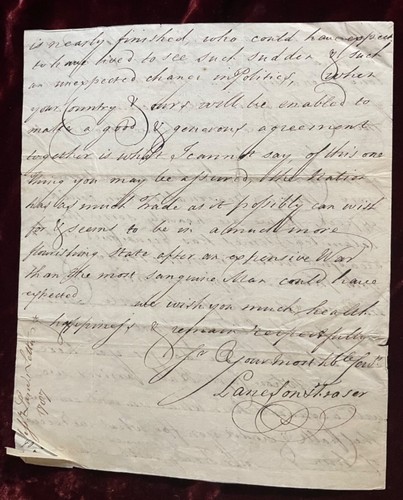 is nearly finished, who could have expected
to have lived to see such sudden & such
an unexpected change in Politics, when
your Country & ours will be enabled to
make a good & generous agreement
together is what I cannot say, of this one
thing you may be assured, the Nation
has as much Trade as it possibly can wish
for & seems to be in a much more
flourishing State after an expensive War
than the most sanguine Man could have
expected we wish you much health
happiness & remain respectfully
Sr Your most hble Servts
Lane Son & Fraser